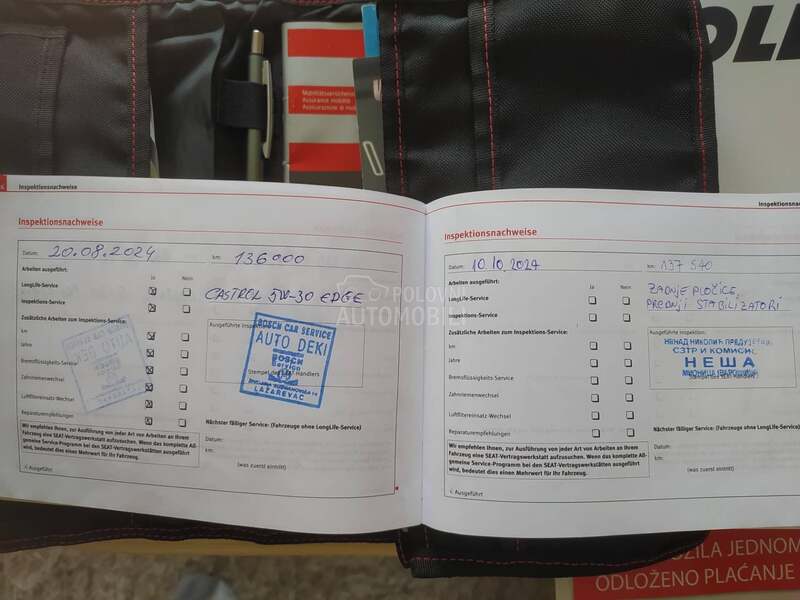 Mobilitätsversicherung
Assurance mobilité
OLL
Inspektionsnachweise
Inspektionsnachweise
Datum: 20.08.2024 km: 136000
Arbeiten ausgeführt: Ja Nein
LongLife-Service
CASTROL 5W-30 EDGE
Inspektions-Service
Zusätzliche Arbeiten zum Inspektions-Service:
km
Jahre
Bremsflüssigkeits-Service
Zahnriemenwechsel
Luftfiltereinsatz-Wechsel
Reparaturempfehlungen
Ausgeführte Inspektion:
BOSCH CAR SERVICE
AUTO DEKI
BOSCH
Service
LAZAREVAC
Stempel des SEAT-Händlers
AUTO DEKI
Nächster fälliger Service: (Fahrzeuge ohne LongLife-Service)
Datum:
km:
(was zuerst eintritt)
Wir empfehlen Ihnen, zur Ausführung von jeder Art von Arbeiten an Ihrem
Fahrzeug eine SEAT-Vertragswerkstatt aufzusuchen. Wenn das komplette All-
gemeine Service-Programm bei den SEAT-Vertragswerkstätten ausgeführt
wird, bedeutet dies einen Mehrwert für Ihr Fahrzeug.
Ausgeführt
POLOVNI
AUTOMOBILI
Inspektionsna
Inspektionsnachweise
Datum: 10.10.2024 km: 137 540
Arbeiten ausgeführt: Ja Nein
LongLife-Service
ZADNJE PLOČICE,
PREDNJI STABILIZATORI
Inspektions-Service
Zusätzliche Arbeiten zum Inspektions-Service:
km
Jahre
Bremsflüssigkeits-Service
Zahnriemenwechsel
Luftfiltereinsatz-Wechsel
Reparaturempfehlungen
Ausgeführte Inspektion:
НЕНАД НИКОЛИЋ ПРЕДУЗЕТНИК
СЗТР И КОМИСИОН
НЕША
Stempel des SEAT-Händlers
Nächster fälliger Service: (Fahrzeuge ohne LongLife-Service)
Datum:
km:
(was zuerst eintritt)
Wir empfehlen Ihnen, zur Ausführung von jeder Art von Arbeiten an Ihrem
Fahrzeug eine SEAT-Vertragswerkstatt aufzusuchen. Wenn das komplette All-
gemeine Service-Programm bei den SEAT-Vertragswerkstätten ausgeführt
wird, bedeutet dies einen Mehrwert für Ihr Fahrzeug.
Ausgeführt
OZILA JEDNOM
ODLOŽENO PLAĆANJE